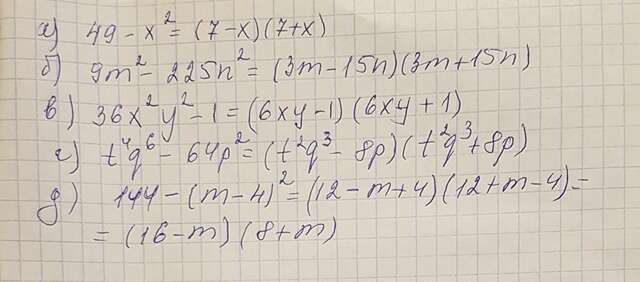 а) 49 - x² = (7-x)(7+x)
б) 9m² - 225n² = (3m-15n)(3m+15n)
в) 36x²y² - 1 = (6xy-1)(6xy+1)
г) t⁴q⁶ - 64p² = (t²q³ - 8p)(t²q³+8p)
д) 144 - (m-4)² = (12-m+4)(12+m-4) =
= (16-m)(8+m)